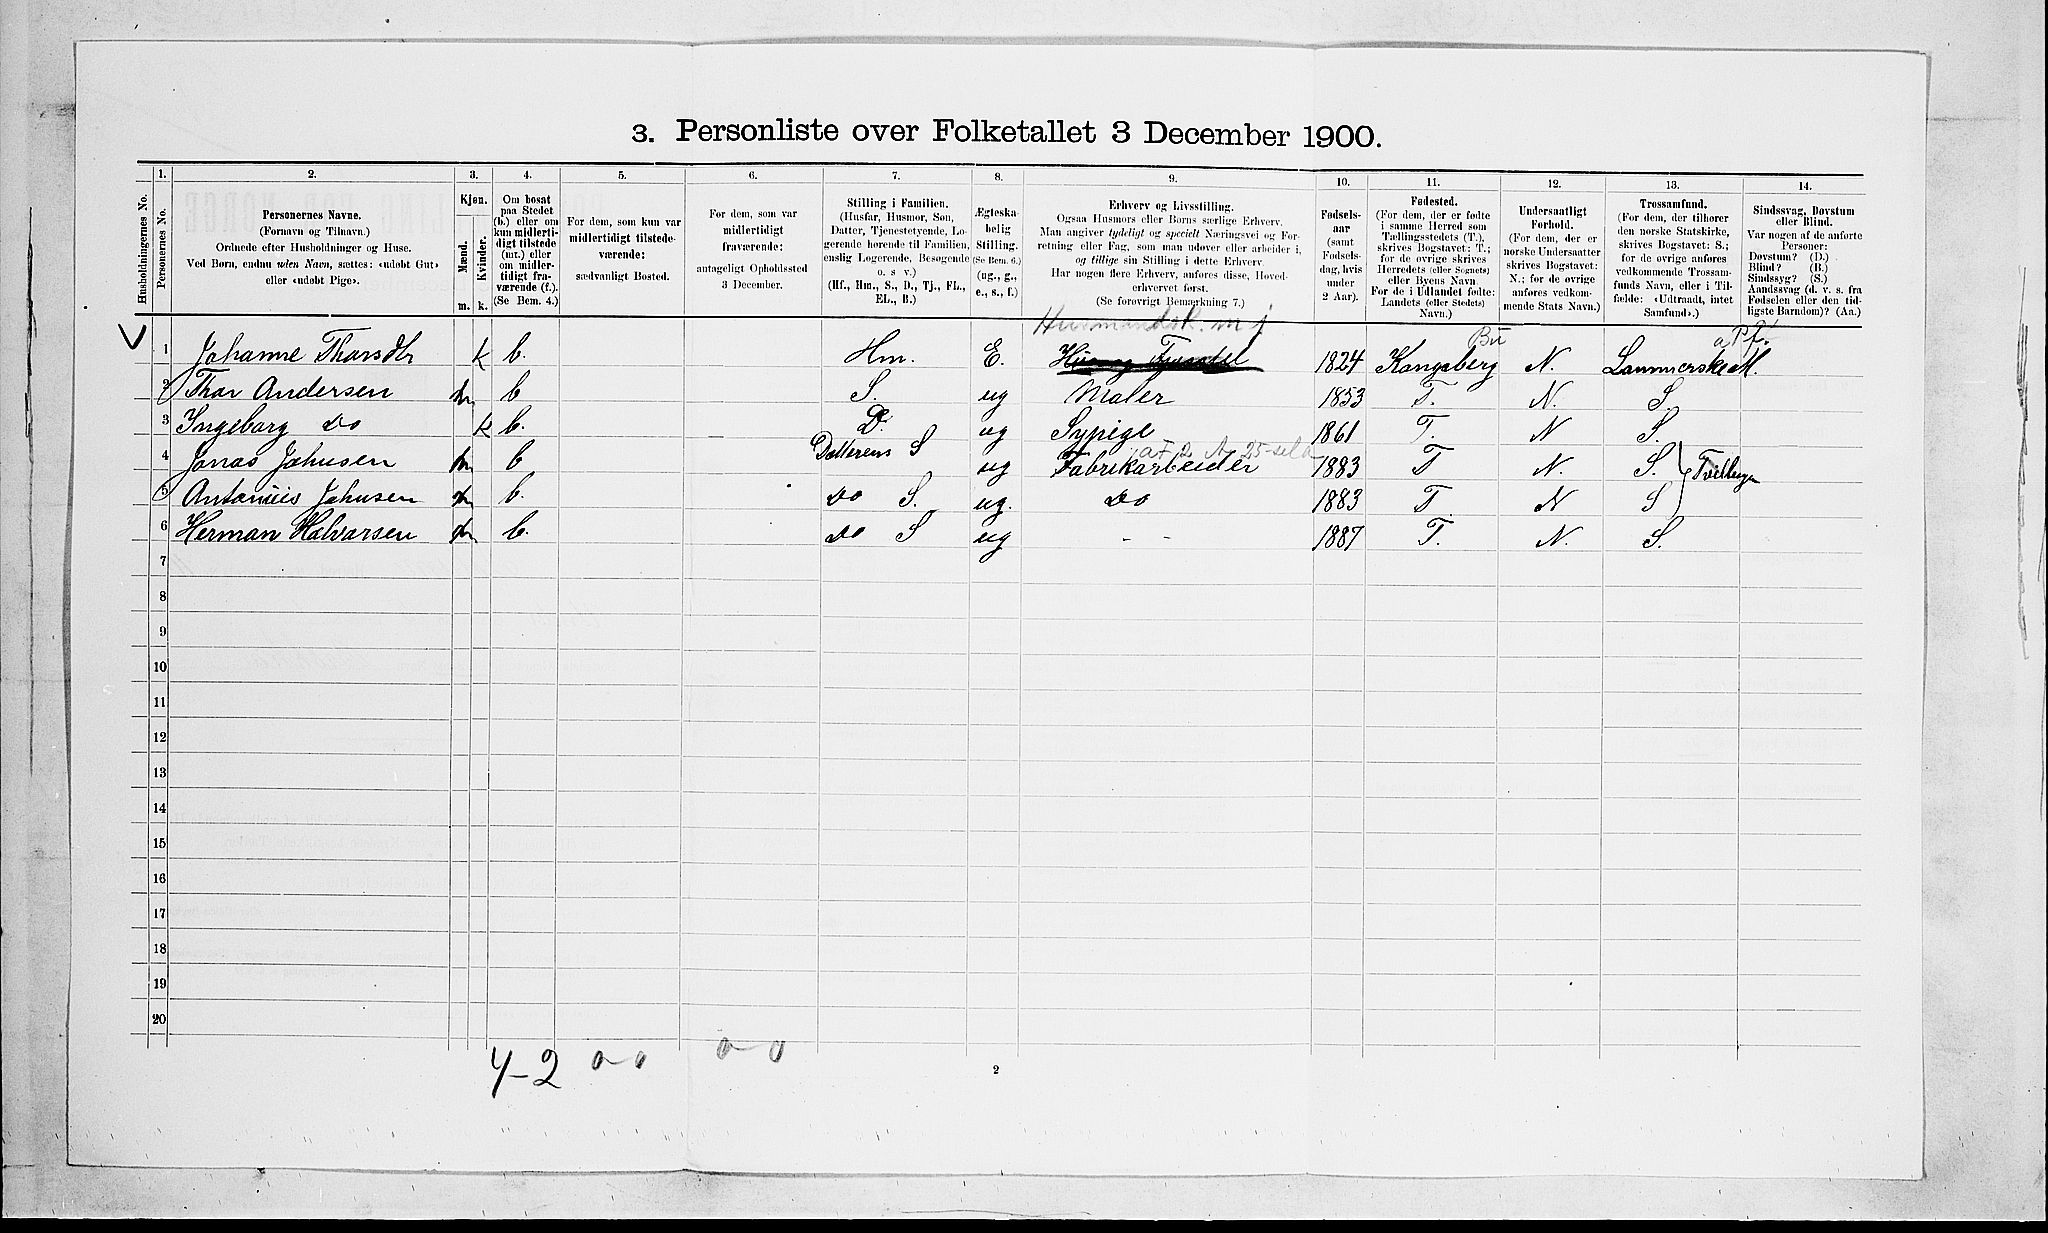 3. Personliste over Folketallet 3 December 1900.
Husholdningernes No.
1.
Personernes No.
2.
Personernes Navne.
(Fornavn og Tilnavn.)
Ordnede efter Husholdninger og Huse.
Ved Børn, endnu uden Navn, sættes: «udøbt Gut»
eller «udøbt Pige».
3.
Kjøn.
Mænd.
Kvinder.
m. k.
4.
Om bosat
paa Stedet
(b.) eller om
kun midlerti-
digt tilstede
(mt.) eller
om midler-
tidigt fra-
værende (f.).
(Se Bem. 4.)
5.
For dem, som kun var
midlertidigt tilstede-
værende:
sædvanligt Bosted.
6.
For dem, som var
midlertidigt
fraværende:
antageligt Opholdssted
3 December.
7.
Stilling i Familien.
(Husfar, Husmor, Søn,
Datter, Tjenestetyende, Lo-
gerende hørende til Familien,
enslig Logerende, Besøgende
o. s v.)
(Hf., Hm., S., D., Tj., FL.,
EL., B.)
8.
Ægteska-
belig
Stilling.
(Se Bem. 6.)
(ug., g.,
e., s., f.)
9.
Erhverv og Livsstilling.
Ogsaa Husmors eller Børns særlige Erhverv.
Man angiver tydeligt og specielt Næringsvei og For-
retning eller Fag, som man udøver eller arbeider i,
og tillige sin Stilling i dette Erhverv.
Har nogen flere Erhverv, anføres disse, Hoved-
erhvervet først.
(Se forøvrigt Bemerkning 7.)
10.
Fødsels-
aar
(samt
Fødsels-
dag, hvis
under
2 Aar).
11.
Fødested.
(For dem, der er fødte
i samme Herred som
Tællingsstedets (T.),
skrives Bogstavet: T.;
for de øvrige skrives
Herredets (eller Sognets)
eller Byens Navn.
For de i Udlandet fødte:
Landets (eller Stedets)
Navn.)
12.
Undersaatligt
Forhold.
(For dem, der er
norske Undersaatter
skrives Bogstavet:
N.; for de øvrige
anføres vedkom-
mende Stats Navn.)
13.
Trossamfund.
(For dem, der tilhører
den norske Statskirke,
skrives Bogstavet: S.;
for de øvrige anføres
vedkommende Trossam-
funds Navn, eller i Til-
fælde: «Udtraadt, intet
Samfund».)
14.
Sindssvag, Døvstum
eller Blind.
Var nogen af de anførte
Personer:
Døvstum? (D.)
Blind? (B.)
Sindssyg? (S.)
Aandssvag (d. v. s. fra
Fødselen eller den tid-
ligste Barndom)? (Aa.)
1 Johanne Thorsdtr k b. Hm. E. 1824 Kongsberg Bu N. Lammerske M.
2 Thor Andersen m b S. ug Maler 1853 T. N. S.
3 Ingeborg Do k b. D. ug Sypige 1861 T. N S.
4 Jonas Johnsen m b Datterens S ug Fabrikarbeider 1883 T N. S. Tvillinger
5 Antonius Johnsen m b. Do S. ug. Do 1883 T. N S
6 Herman Halvorsen m b. Do S ug - - 1887 T. N. S.
7
8
9
10
11
12
13
14
15
16
17
18
19
20
4-2 0 0 0 0
2